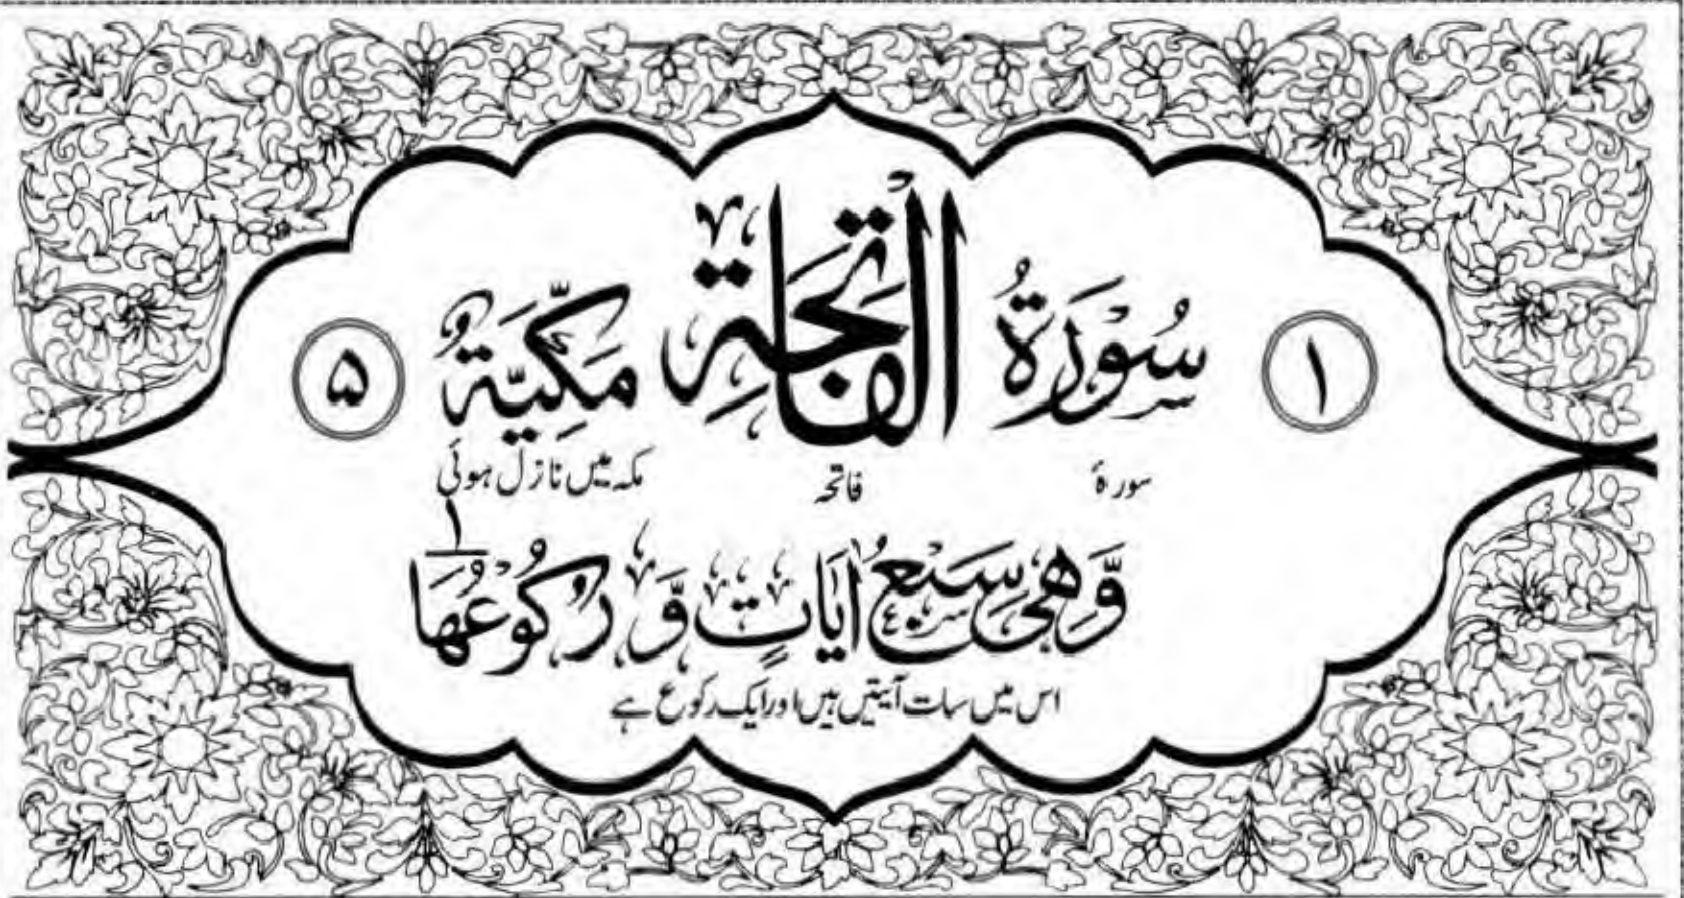 ١ سُوْرَةُ الْفَاتِحَةِ مَكِّيَّةٌ ۵
سورۂ فاتحہ مکہ میں نازل ہوئی
وَّهِیَ سَبْعُ اٰیَاتٍ وَّ رُکُوْعُهَا ١
اس میں سات آیتیں ہیں اور ایک رکوع ہے